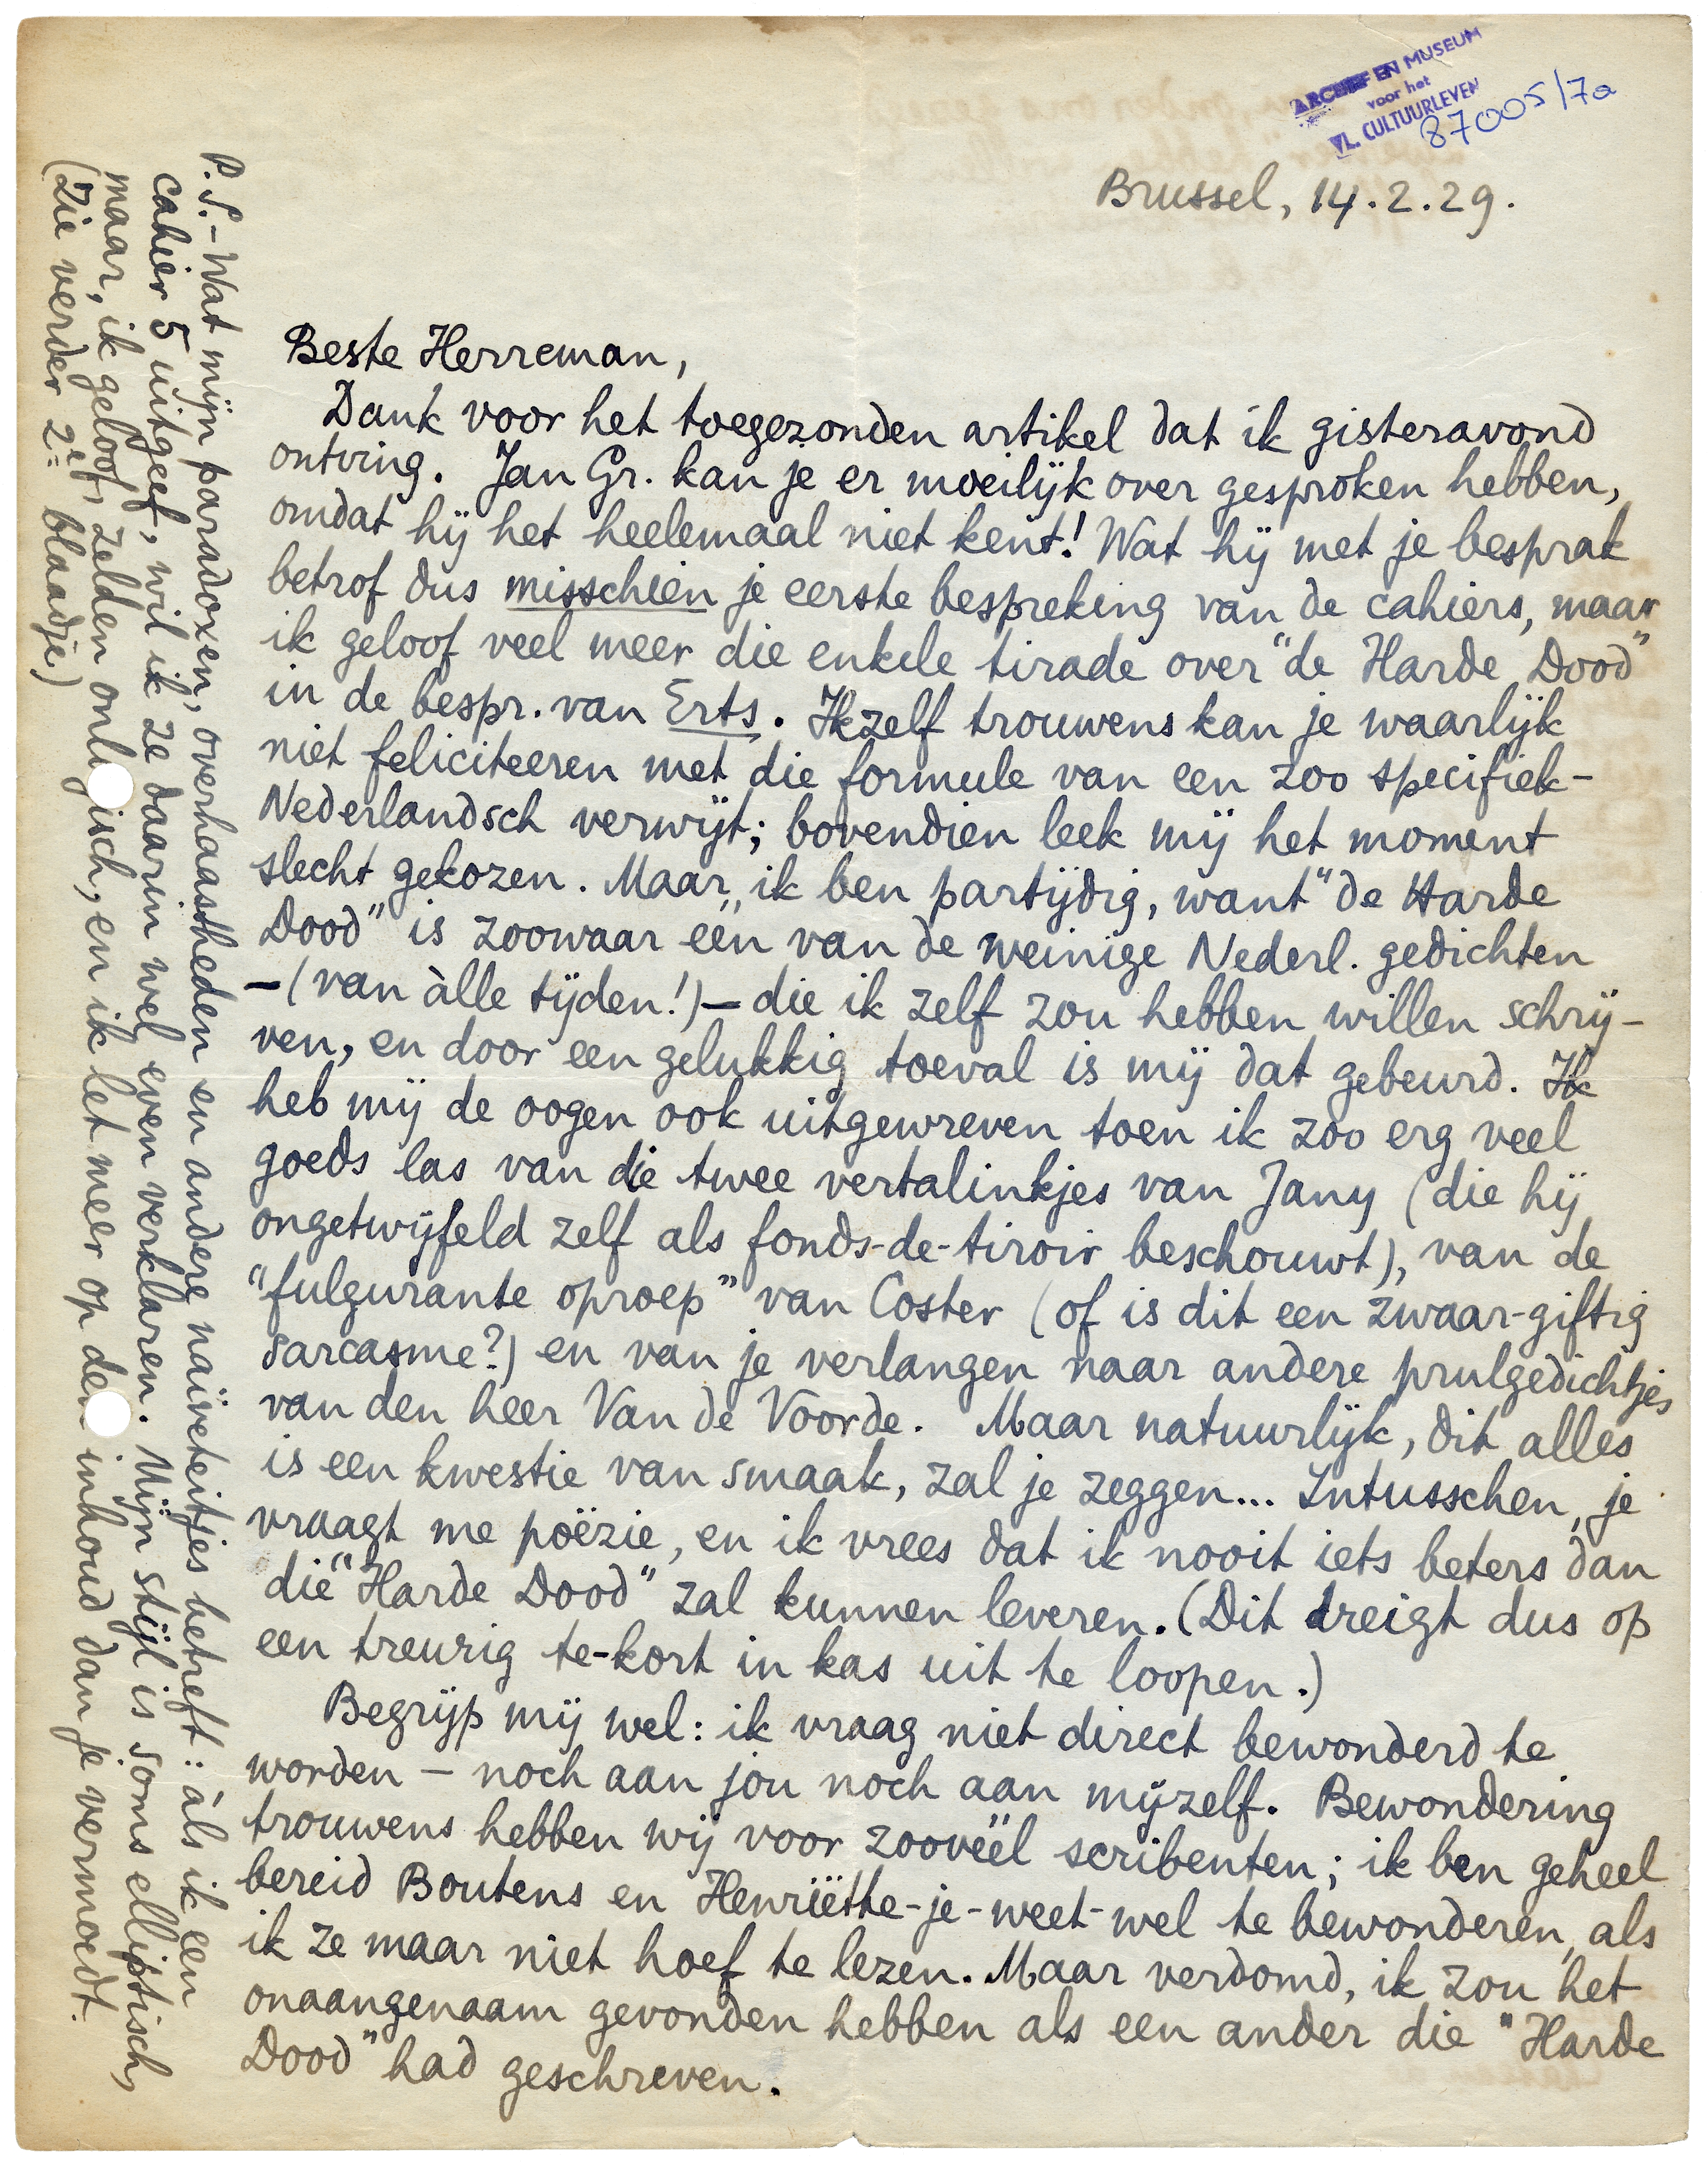 ARCHIEF EN MUSEUM
voor het
VL. CULTUURLEVEN
87005/7a
Brussel, 14.2.29.
Beste Herreman,
Dank voor het toegezonden artikel dat ik gisteravond
ontving. Jan Gr. kan je er moeilijk over gesproken hebben,
omdat hij het heelemaal niet kent! Wat hij met je besprak
betrof dus misschien je eerste bespreking van de cahiers, maar
ik geloof veel meer die enkele tirade over "de Harde Dood"
in de bespr. van Erts. Ikzelf trouwens kan je waarlijk
niet feliciteeren met die formule van een zoo specifiek-
Nederlandsch verwijt; bovendien leek mij het moment
slecht gekozen. Maar, ik ben partijdig, want "de Harde
Dood" is zoowaar één van de weinige Nederl. gedichten
-(van àlle tijden!)- die ik zelf zou hebben willen schrij-
ven, en door een gelukkig toeval is mij dat gebeurd. Ik
heb mij de oogen ook uitgewreven toen ik zoo erg veel
goeds las van die twee vertalinkjes van Jany (die hij
ongetwijfeld zelf als fonds-de-tiroir beschouwt), van de
"fulgurante oproep" van Coster (of is dit een zwaar-giftig
sarcasme?) en van je verlangen naar andere prulgedichtjes
van den heer Van de Voorde. Maar natuurlijk, dit alles
is een kwestie van smaak, zal je zeggen... Intusschen, je
vraagt me poëzie, en ik vrees dat ik nooit iets beters dan
die "Harde Dood" zal kunnen leveren. (Dit dreigt dus op
een treurig te-kort in kas uit te loopen.)
Begrijp mij wel: ik vraag niet direct bewonderd te
worden – noch aan jou noch aan mijzelf. Bewondering
trouwens hebben wij voor zooveël scribenten; ik ben geheel
bereid Boutens en Henriëtte-je-weet-wel te bewonderen, als
ik ze maar niet hoef te lezen. Maar verdomd, ik zou het
onaangenaam gevonden hebben als een ander die "Harde
Dood" had geschreven.
P.S.- Wat mijn paradoxen, overhaastheden en andere naïveteitjes betreft: àls ik een
cahier 5 uitgeef, wil ik ze daarin wel even verklaren. Mijn stijl is soms elliptisch,
maar, ik geloof, zelden onlogisch, en ik let meer op den inhoud dan je vermoedt.
(Zie verder 2e blaadje)